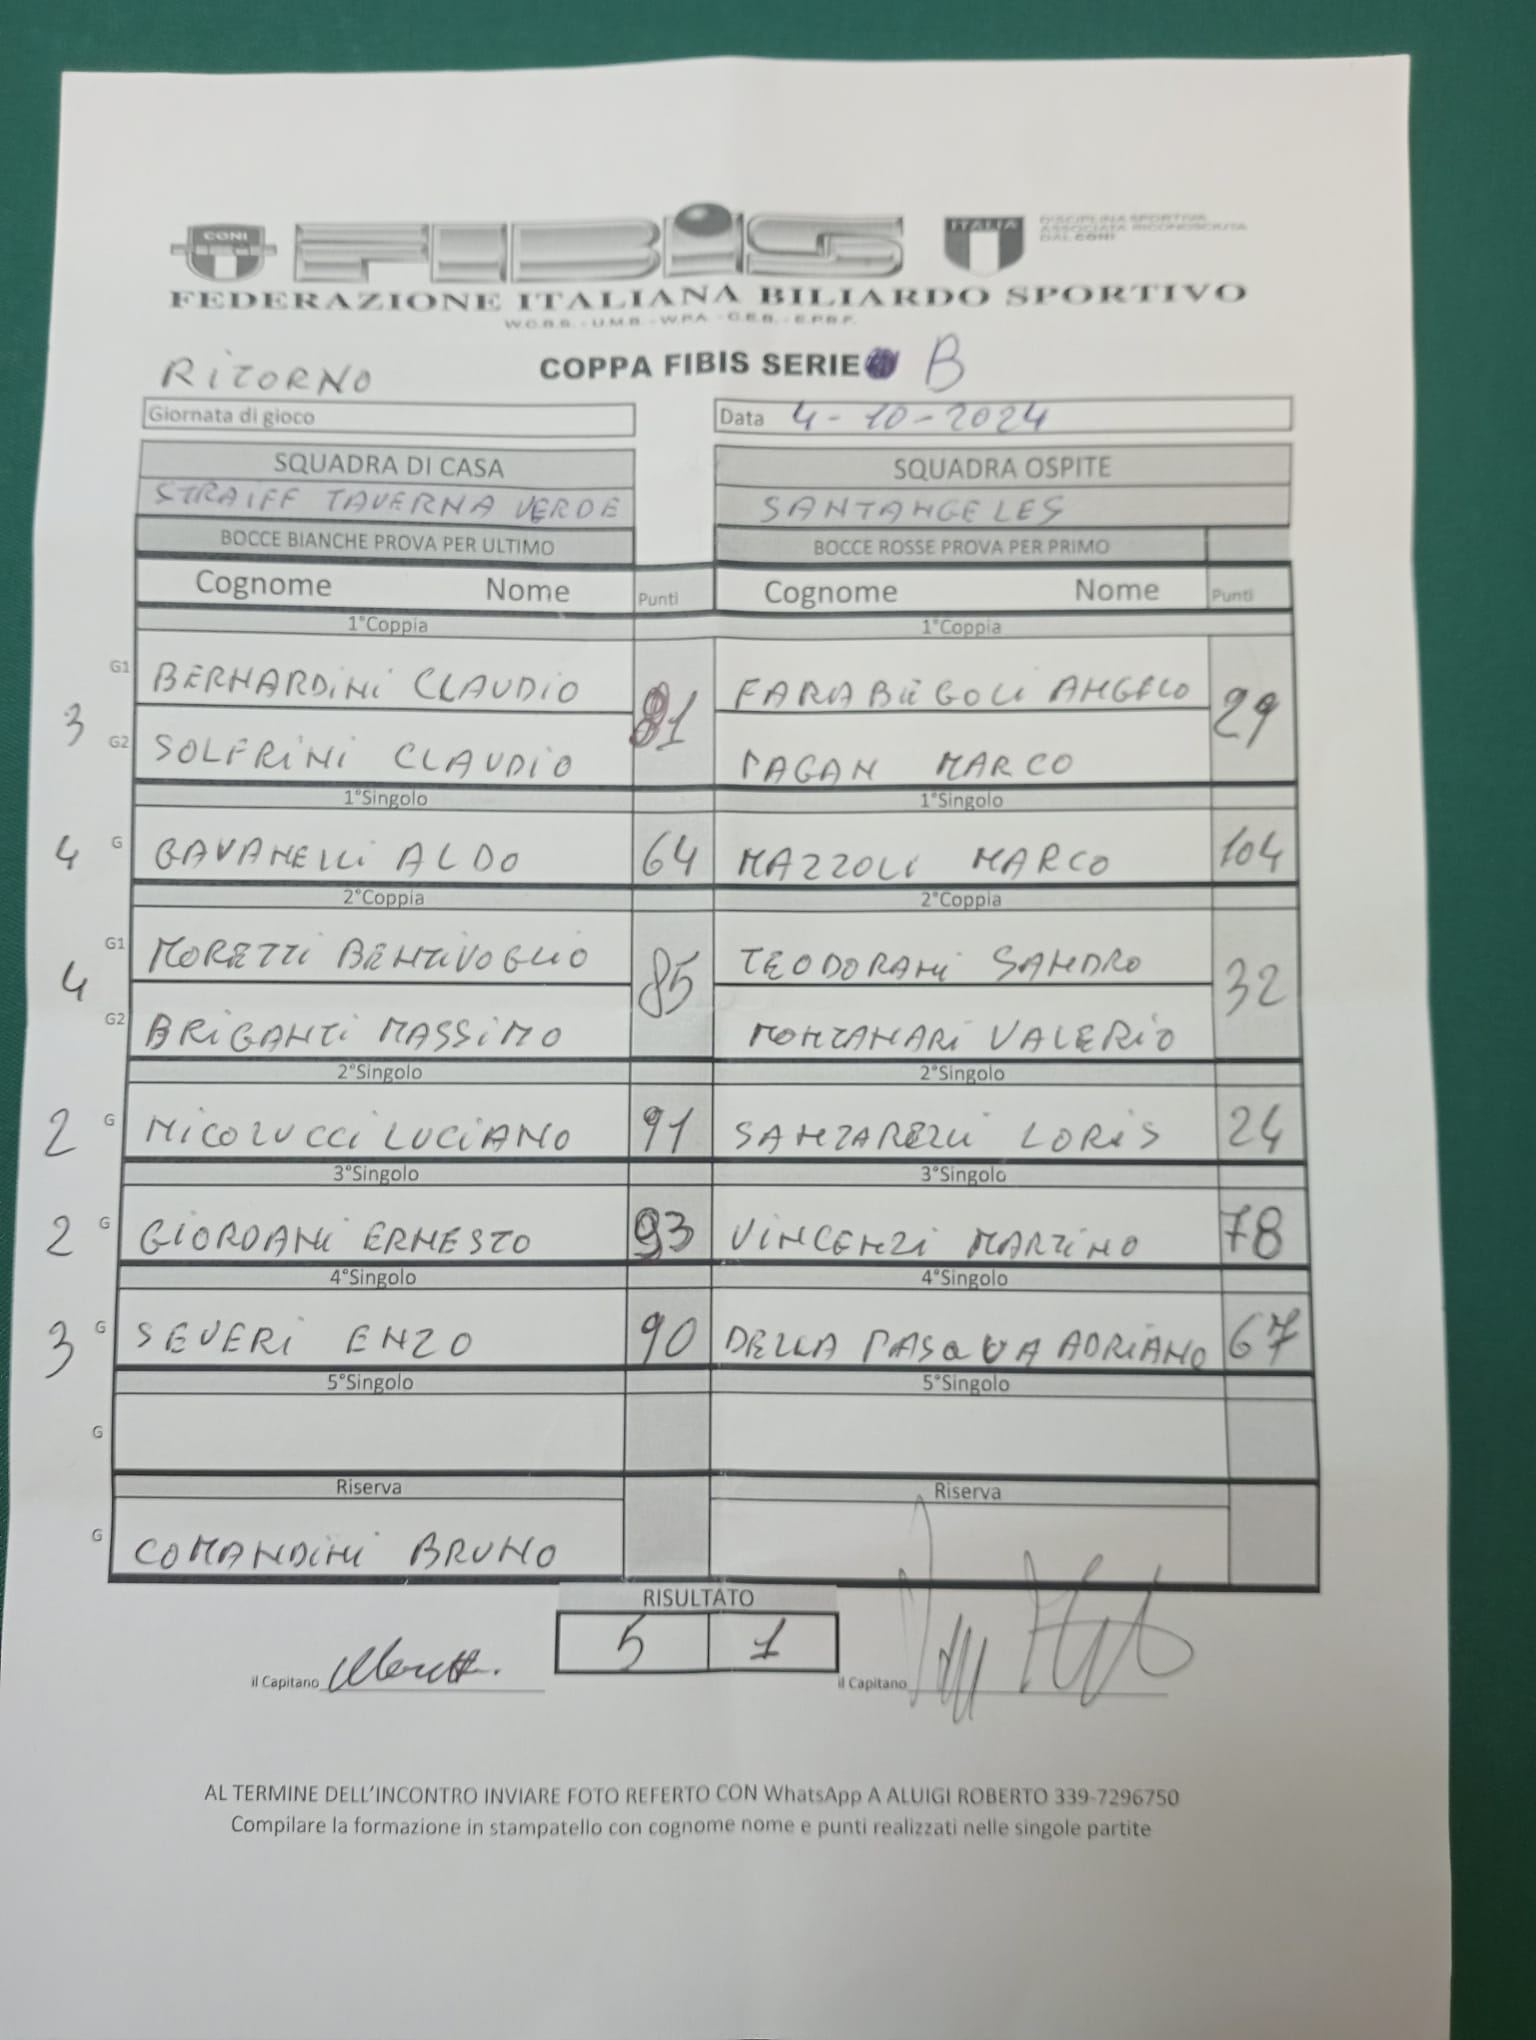 CONI
FIBiS
ITALIA
DISCIPLINA SPORTIVA
ASSOCIATA RICONOSCIUTA
DAL CONI
FEDERAZIONE ITALIANA BILIARDO SPORTIVO
W.C.B.S. - U.M.B. - W.P.A. - C.E.B. - E.P.B.F.
RITORNO
COPPA FIBIS SERIE B
Giornata di gioco
Data 4-10-2024
SQUADRA DI CASA SQUADRA OSPITE
STRAIFF TAVERNA VERDE SANTANGELES
BOCCE BIANCHE PROVA PER ULTIMO BOCCE ROSSE PROVA PER PRIMO
Cognome Nome Punti Cognome Nome Punti
1°Coppia 1°Coppia
G1 BERNARDINI CLAUDIO FARABEGOLI ANGELO
3 81 29
G2 SOLFRINI CLAUDIO PAGAN MARCO
1°Singolo 1°Singolo
4 G GAVANELLI ALDO 64 MAZZOLI MARCO 104
2°Coppia 2°Coppia
G1 MORETTI BENTIVOGLIO TEODORANI SANDRO
4 85 32
G2 BRIGANTI MASSIMO MONTANARI VALERIO
2°Singolo 2°Singolo
2 G NICOLUCCI LUCIANO 91 SANZARELLI LORIS 24
3°Singolo 3°Singolo
2 G GIORDANI ERNESTO 93 VINCENZI MARTINO 78
4°Singolo 4°Singolo
3 G SEVERI ENZO 90 DELLA PASQUA ADRIANO 67
5°Singolo 5°Singolo
G
Riserva Riserva
G COMANDINI BRUNO
RISULTATO
5 1
il Capitano il Capitano
AL TERMINE DELL'INCONTRO INVIARE FOTO REFERTO CON WhatsApp A ALUIGI ROBERTO 339-7296750
Compilare la formazione in stampatello con cognome nome e punti realizzati nelle singole partite